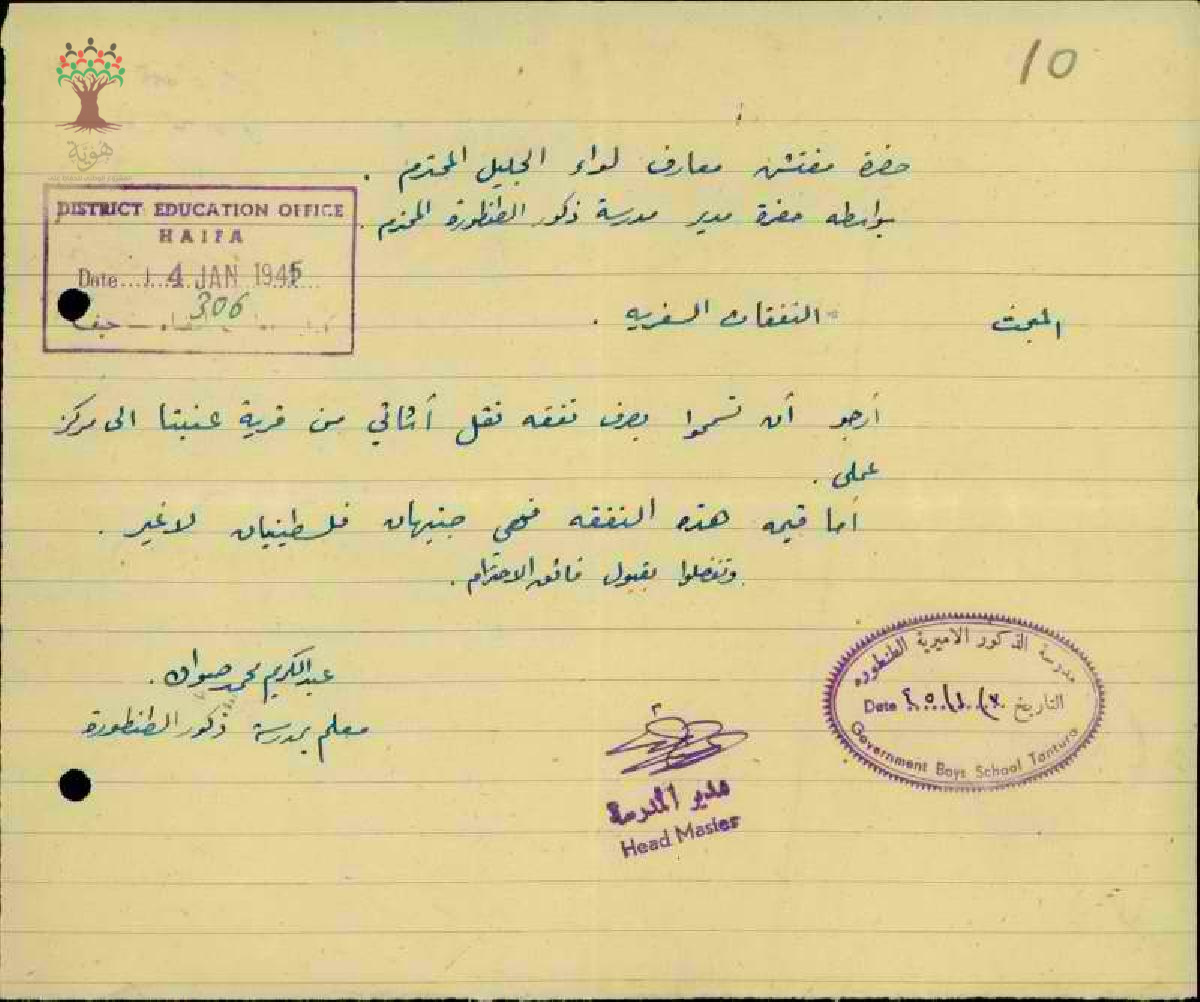 10
هوية
حضرة مفتش معارف لواء الجليل المحترم .
بواسطة حضرة مدير مدرسة ذكور الطنطورة المحترم .
DISTRICT EDUCATION OFFICE
HAIFA
Date 4 JAN 1945
306
حيفا
المبحث النفقات السفرية .
أرجو أن تسمحوا بصرف نفقه نقل أثاثي من قرية عنبتا الى مركز
عملي .
أما قيمه هذه النفقه فهي جنيهان فلسطينيان لا غير .
وتفضلوا بقبول فائق الاحترام .
عبد الكريم محمد
معلم بمدرسة ذكور الطنطورة
مدير المدرسة
Head Master
مدرسة الذكور الاميرية الطنطوره
Date التاريخ
Government Boys School Tantura